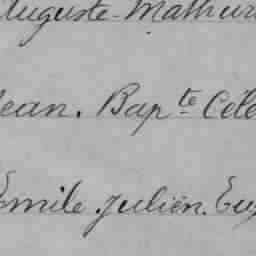 Auguste-Mathuri
Jean. Bap<sup>te</sup> Céle
Emile. Julien. Eug